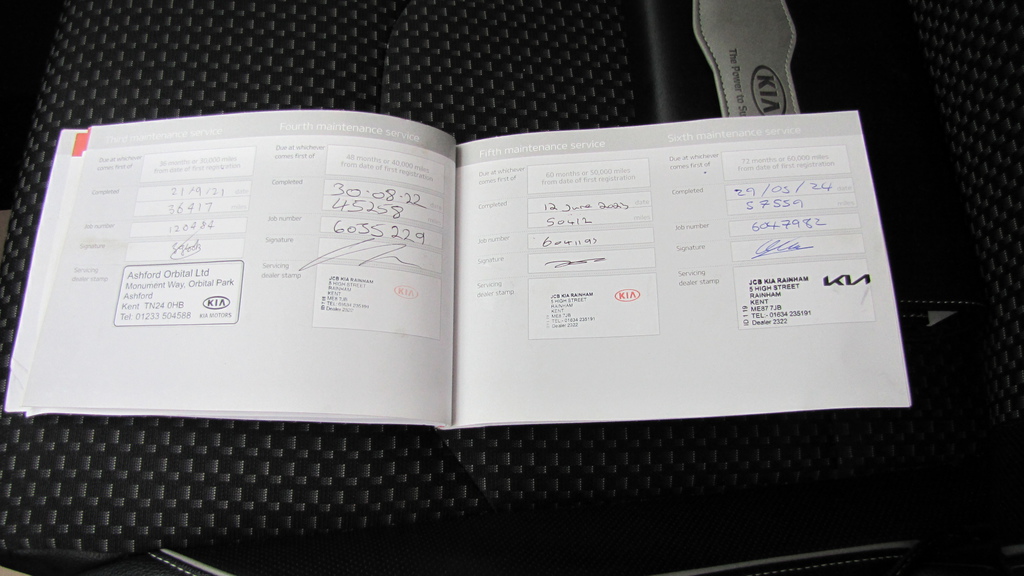 KIA
The Power to
Third maintenance service
Due at whichever
comes first of
36 months or 30,000 miles
from date of first registration
Completed
21/9/21 date
36417 miles
Job number
120484
Signature
Servicing
dealer stamp
Ashford Orbital Ltd
Monument Way, Orbital Park
Ashford
Kent TN24 0HB
Tel: 01233 504588
KIA
KIA MOTORS
Fourth maintenance service
Due at whichever
comes first of
48 months or 40,000 miles
from date of first registration
Completed
30.08.22 date
45258 miles
Job number
6035229
Signature
Servicing
dealer stamp
JCB KIA RAINHAM
5 HIGH STREET
RAINHAM
KENT
ME8 7JB
Dealer 2322
KIA
Fifth maintenance service
Due at whichever
comes first of
60 months or 50,000 miles
from date of first registration
Completed
12 June 2023 date
50412 miles
Job number
6041197
Signature
Servicing
dealer stamp
JCB KIA RAINHAM
5 HIGH STREET
RAINHAM
KENT
ME8 7JB
TEL:- 01634 235191
Dealer 2322
KIA
Sixth maintenance service
Due at whichever
comes first of
72 months or 60,000 miles
from date of first registration
Completed
29/05/24 date
57559 miles
Job number
6047982
Signature
Servicing
dealer stamp
JCB KIA RAINHAM
5 HIGH STREET
RAINHAM
KENT
ME87 7JB
TEL:- 01634 235191
Dealer 2322
KIA